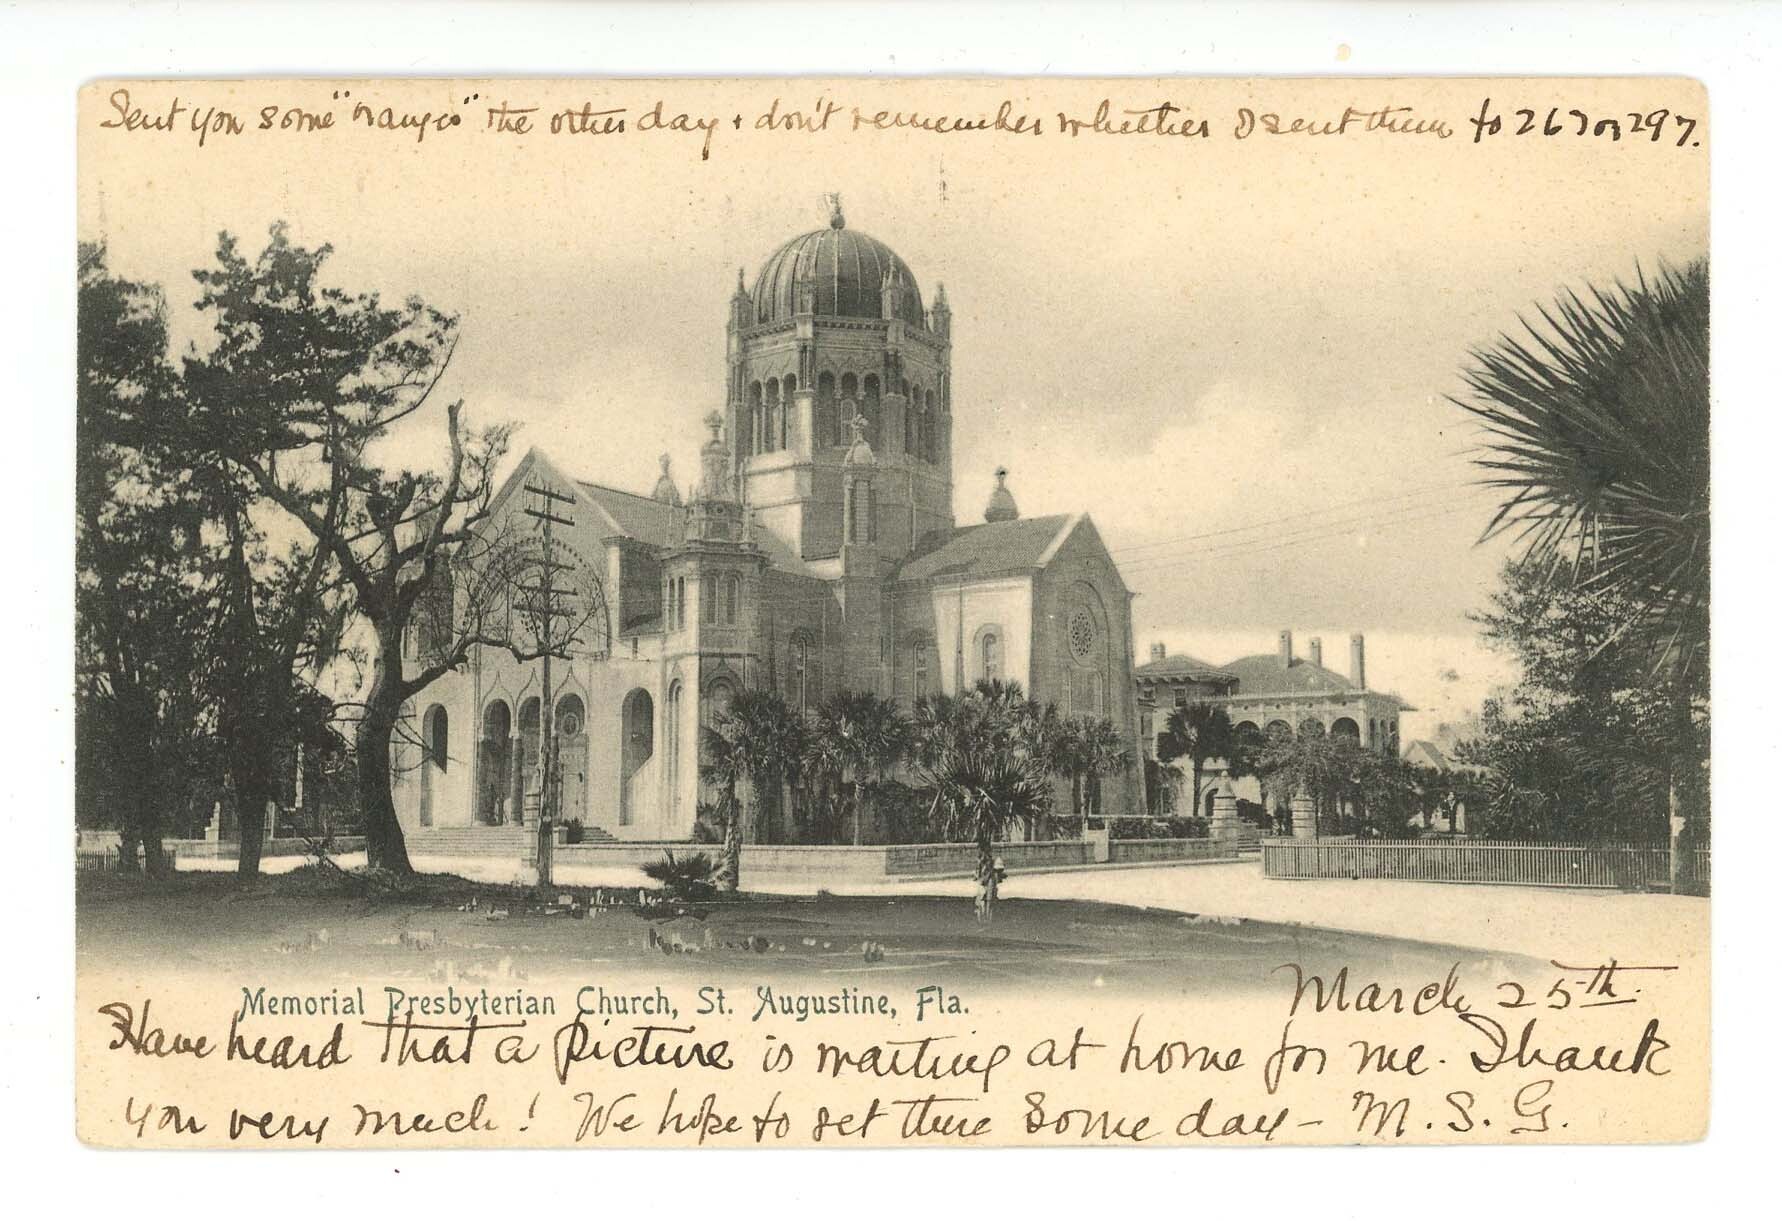 Sent you some "oranges" the other day + don't remember whether I sent them to 267 or 297.
Memorial Presbyterian Church, St. Augustine, Fla.
March 25th.
Have heard that a picture is waiting at home for me. Thank
you very much! We hope to get there some day - M. S. G.